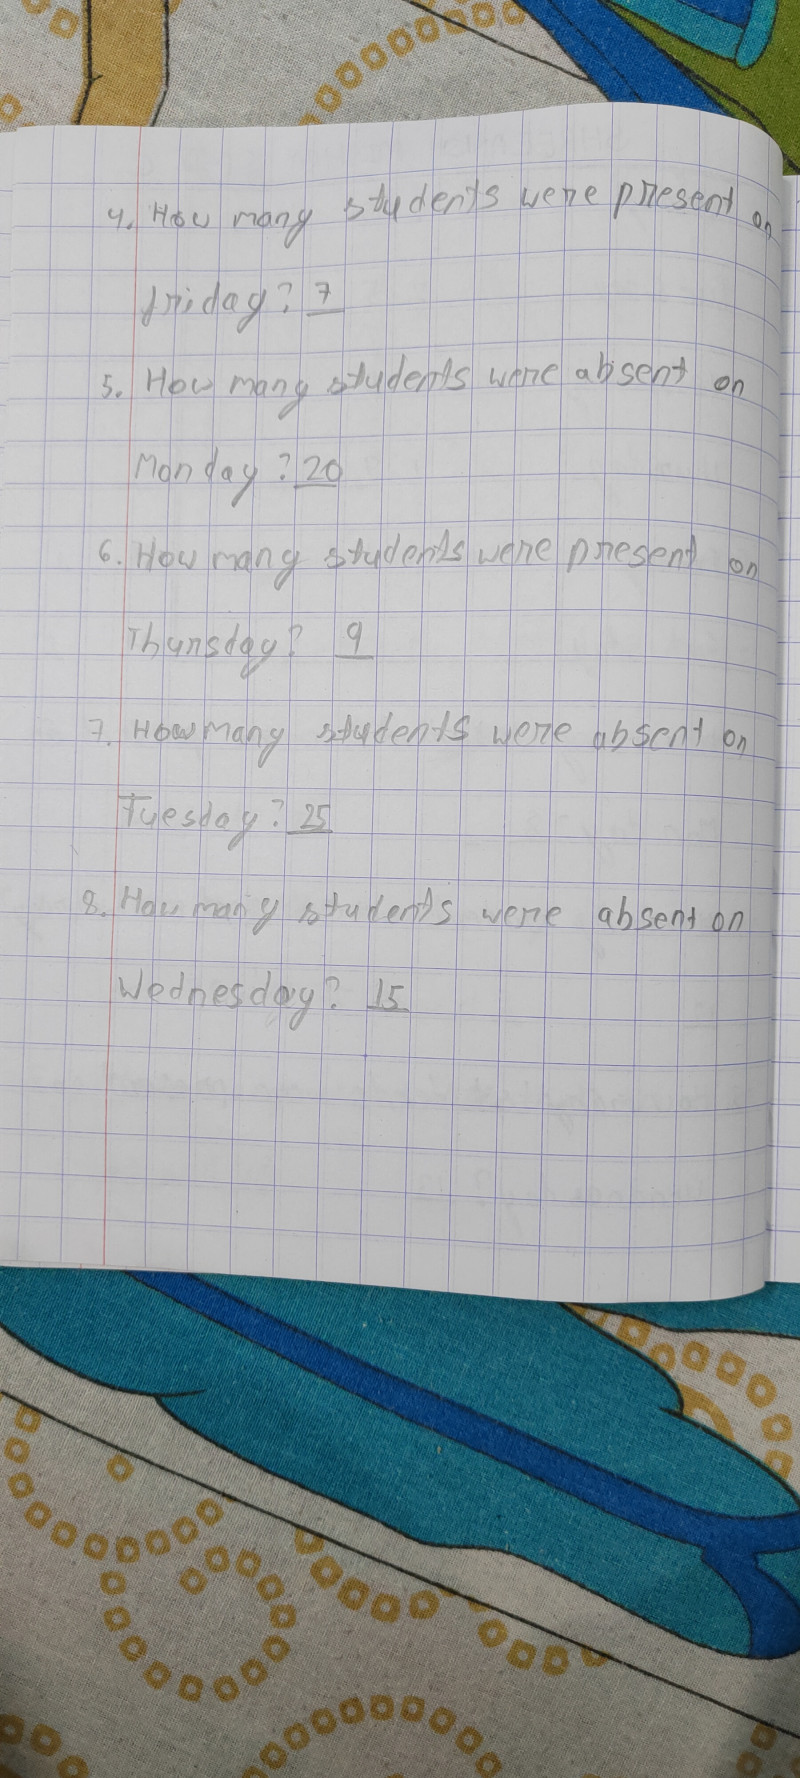 4. How many students were present on
friday? 7
5. How many students were absent on
Monday? 20
6. How many students were present on
Thursday? 9
7. How many students were absent on
Tuesday? 25
8. How many students were absent on
Wednesday? 15